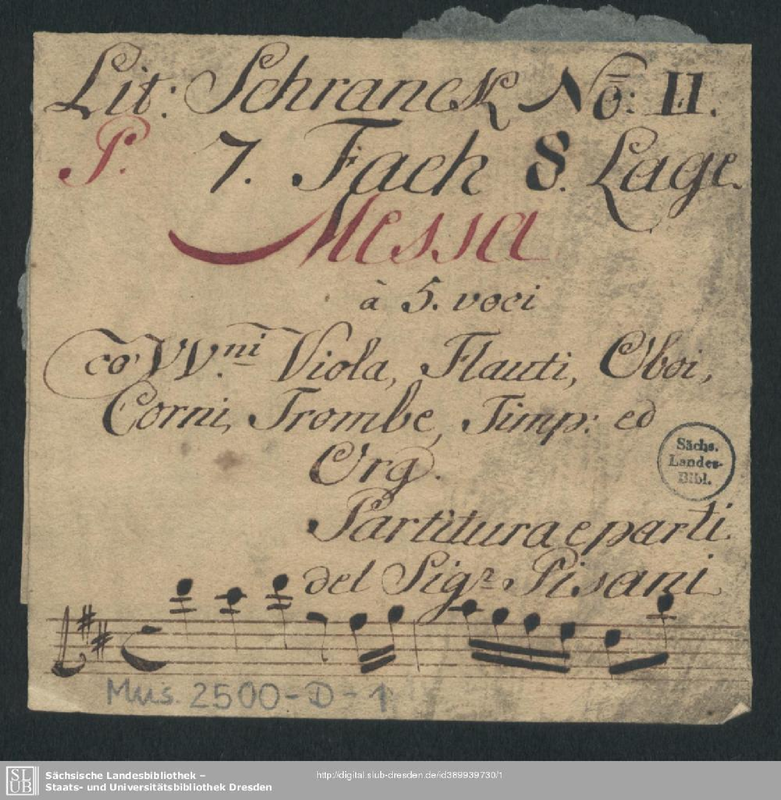 Lit: Schranck No: II.
P. 7. Fach 8. Lage.
Messa
à 5. voci
co VV.ni Viola, Flauti, Oboi,
Corni, Trombe, Timp: ed
Org.
Partitura e parti
del Sigr. Pisani
Sächs.
Landes-
Bibl.
Mus. 2500-D-1
SLUB
Sächsische Landesbibliothek –
Staats- und Universitätsbibliothek Dresden
http://digital.slub-dresden.de/id389939730/1